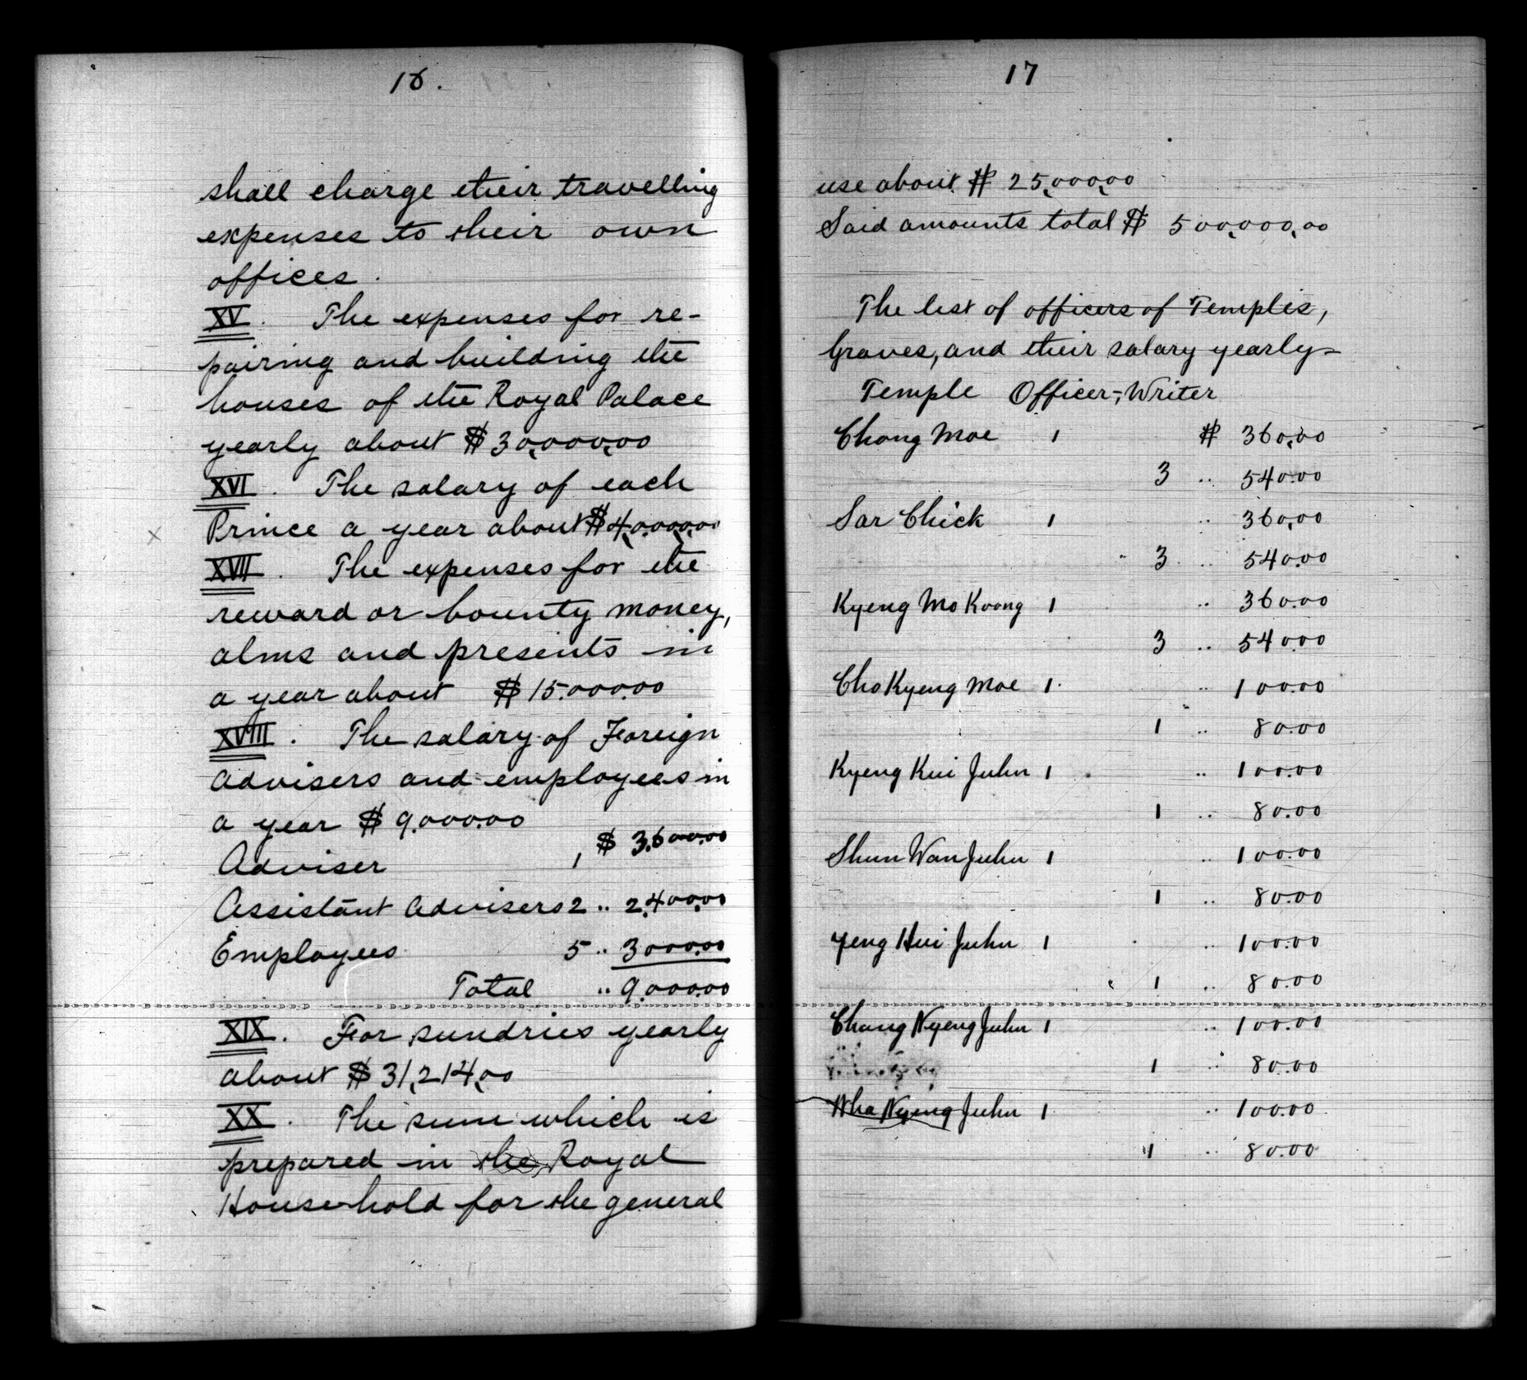 16.
shall charge their travelling
expenses to their own
offices.
XV. The expenses for re-
pairing and building the
houses of the Royal Palace
yearly about $30,000,00
XVI. The salary of each
Prince a year about $4,000,00
XVII. The expenses for the
reward or bounty money,
alms and presents in
a year about $15.000.00
XVIII. The salary of Foreign
Advisers and employees in
a year $9.000.00
Adviser 1 $3.600.00
Assistant Advisers 2 " 2,400.00
Employees 5 " 3000.00
Total " 9.000.00
XIX. For sundries yearly
about $31,214,00
XX. The sum which is
prepared in the Royal
Household for the general
17
use about $25,000,00
Said amounts total $500,000,00
The list of officers of Temples,
Graves, and their salary yearly-
Temple Officer,-Writer
Chong Moe 1 $360,00
3 " 540.00
Sar Chick 1 " 360,00
3 " 540.00
Kyeng Mo Koong 1 " 360.00
3 " 540.00
Cho Kyeng Moe 1 " 100.00
1 " 80.00
Kyeng Kui Juhn 1 " 100.00
1 " 80.00
Shun Wan Juhn 1 " 100.00
1 " 80.00
Yeng Hui Juhn 1 " 100.00
1 " 80.00
Chang Nyeng Juhn 1 " 100.00
1 " 80.00
Wha Nyeng Juhn 1 " 100.00
1 " 80.00